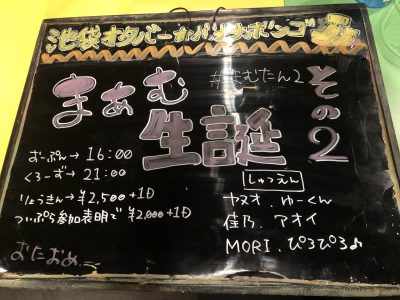 池袋オタバーカバナボンゴ
まぁむ
生誕
その2
#まむたん2
おーぷん→16:00
くろーず→21:00
りょうきん→¥2,500+1D
ついぷら参加表明で¥2,000+1D
しゅつえん
ヤヌオ.ゆーくん
佳乃.アオイ
MORI.ぴろぴろ♪
おたおめ